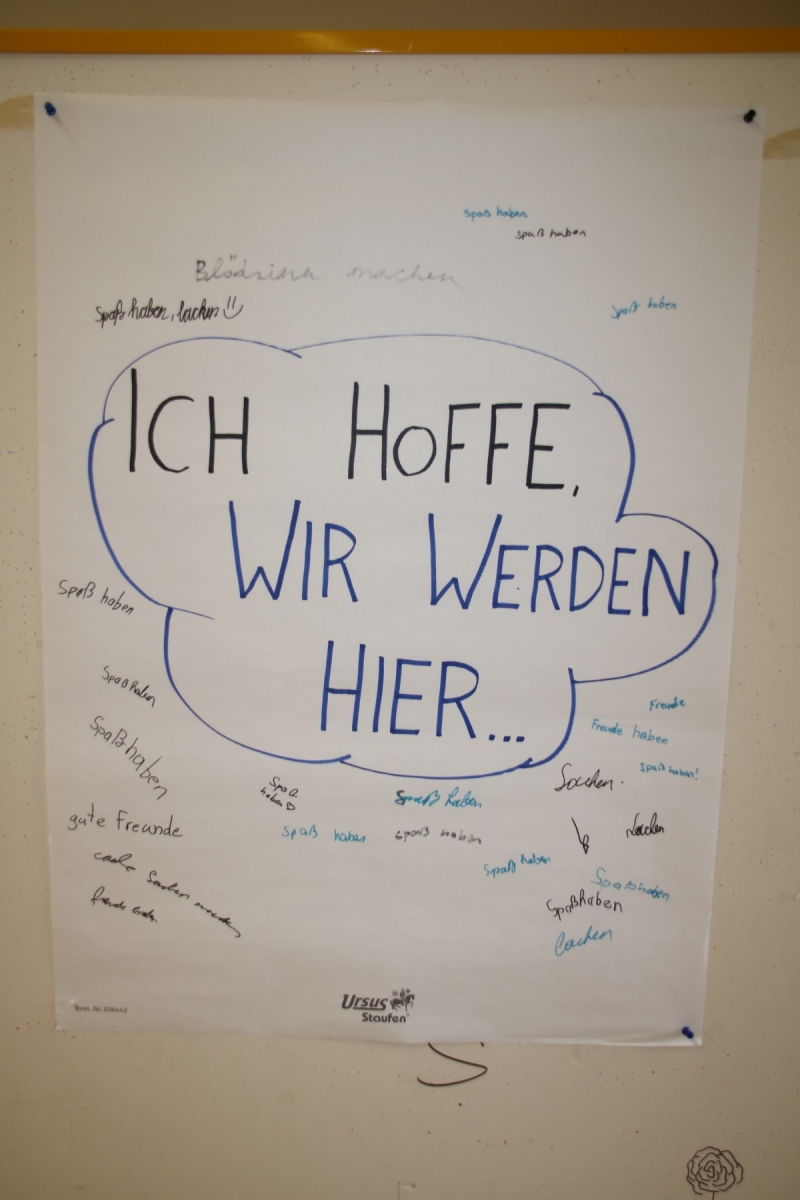 Spaß haben
spaß haben
Blödsinn machen
Spaß haben, lachen
Spaß haben
ICH HOFFE,
WIR WERDEN
HIER...
Spaß haben
Spaß haben
Spaß haben
gute Freunde
coole Sachen machen
Freude
Freude haben
spaß haben!
Lachen
Spaß
haben
Spaß haben
Spaß haben
spaß haben
Spaß haben
Spaß haben
Spaß haben
lachen
Best. Nr. 036442
Ursus
Staufen